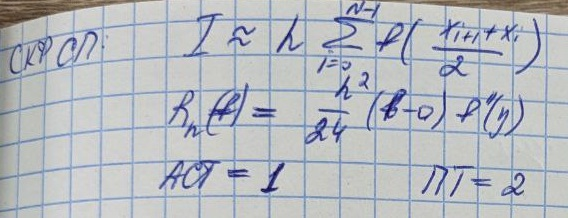 СКФ СП: I ≈ h ∑_{i=0}^{N-1} f( \frac{x_{i+1}+x_i}{2} )
R_n(f) = \frac{h^2}{24} (b-a) f''(η)
АСТ = 1 ПТ = 2